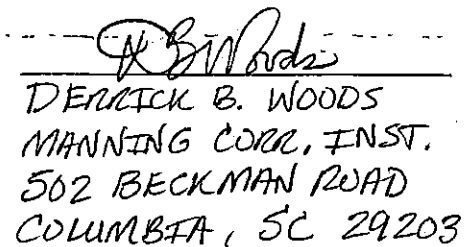 DB Woods
DERRICK B. WOODS
MANNING CORR. INST.
502 BECKMAN ROAD
COLUMBIA, SC 29203